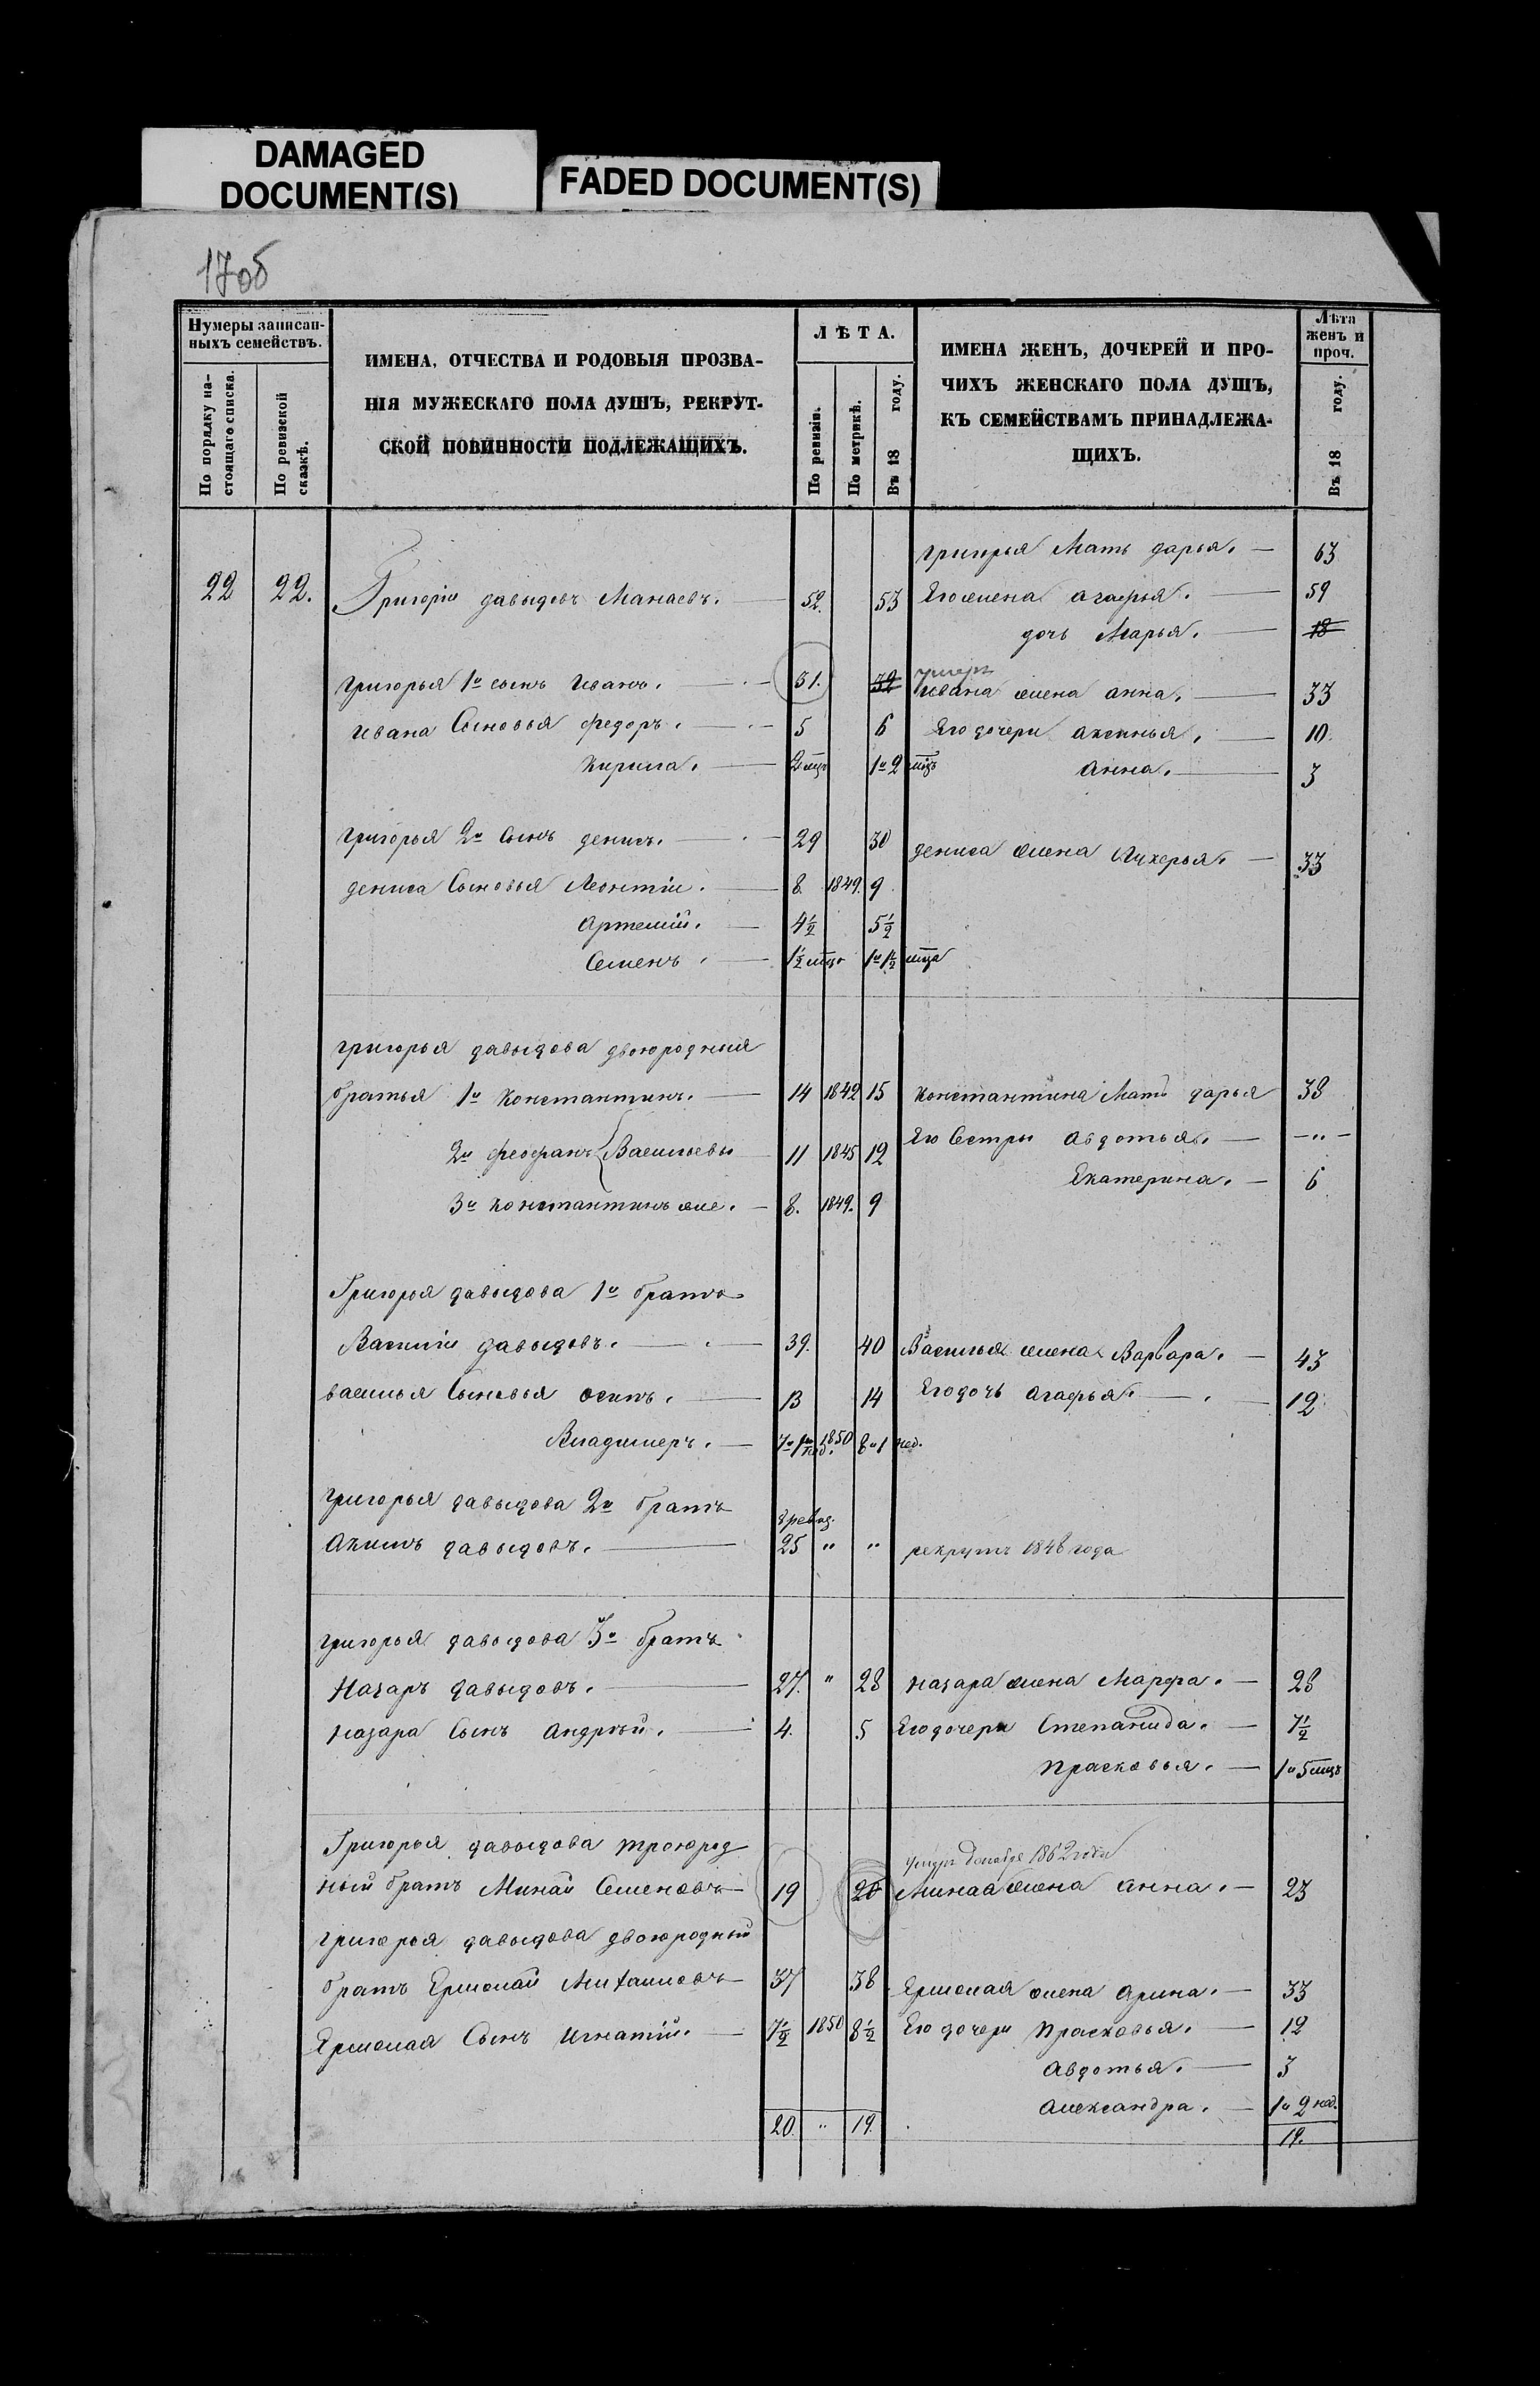 DAMAGED
DOCUMENT(S)
FADED DOCUMENT(S)
17об
Нумеры записан-
ныхъ семействъ.
По порядку на-
стоящаго списка.
По ревизской
сказкѣ.
ИМЕНА, ОТЧЕСТВА И РОДОВЫЯ ПРОЗВА-
НІЯ МУЖЕСКАГО ПОЛА ДУШЪ, РЕКРУТ-
СКОЙ ПОВИННОСТИ ПОДЛЕЖАЩИХЪ.
ЛѢТА.
По ревизіи.
По метрикѣ.
Въ 18 году.
ИМЕНА ЖЕНЪ, ДОЧЕРЕЙ И ПРО-
ЧИХЪ ЖЕНСКАГО ПОЛА ДУШЪ,
КЪ СЕМЕЙСТВАМЪ ПРИНАДЛЕЖА-
ЩИХЪ.
Лѣта
женъ и
проч.
Въ 18 году.
григорья Мать дарья. — 63
22 22. Григорій давыдовъ Манаевъ. — 52. 53 Его жена агафья. — 59
дочь Марья. — 18
умеръ
григорья 1й сынъ Иванъ. — 31. 32 Ивана жена анна. — 33
Ивана Сыновья федоръ. — 5 6 Его дочери аксинья. — 10.
Кирила. — 2 мцъ 1и2 мцъ анна. — 3
григорья 2й Сынъ денисъ. — 29 30 дениса жена Лукерья. — 33
дениса Сыновья Леонтій. — 8. 1849. 9
Артемій. — 4½ 5½
Семенъ. — 1½ мца 1и1½ мца
григорья давыдова двоюродныя
братья 1й Константинъ. — 14 1842 15 Константина Мать дарья 38
2й феофанъ Васильевы 11 1845 12 Его Сестры авдотья. — -"-
3й Константинъ же. — 8. 1849. 9 Екатерина. — 6
Григорья давыдова 1й братъ
Василій давыдовъ. — 39. 40 Василья жена Варвара. — 43
василья Сыновья осипъ. — 13 14 Его дочь агафья. — 12
Владимеръ. — 7и1 нед. 1850 8и1 нед.
григорья давыдова 2й братъ
Акимъ давыдовъ. — 25 " " рекрутъ 1848 года
григорья давыдова 3й братъ
Назаръ давыдовъ. — 27. " 28 назара жена Марфа. — 28
назара Сынъ андрѣй. — 4. 5 Его дочери Степанида. — 7½
прасковья. — 1и5 мцъ
Григорья давыдова троюрод
умеръ Декабря 1862 года
ный братъ Минай Семеновъ — 19 20 Миная жена анна. — 23
григорья давыдова двоюродный
братъ Ермолай Михайловъ — 37 38 Ермолая жена арина. — 33
Ермолая Сынъ Игнатій. — 7½ 1850 8½ Его дочери прасковья. — 12
авдотья. — 3
александра. — 1и 2 нед.
20. " 19. 19.